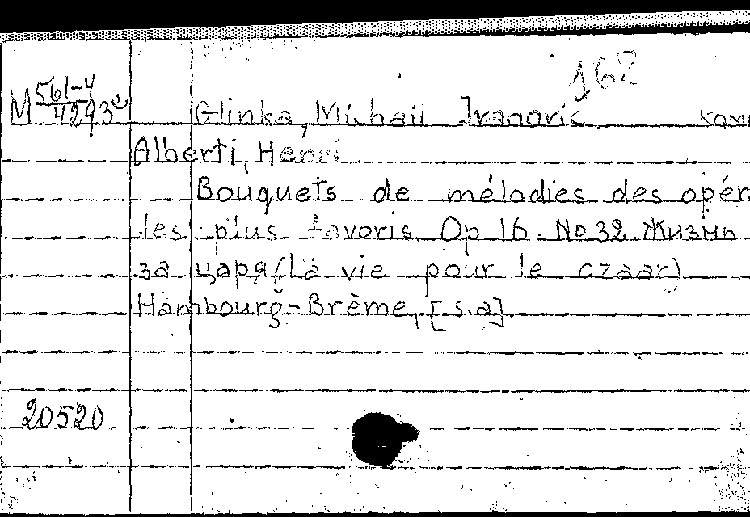 162
М 561-4
4293
Glinka, Michail Ivanovič
Alberti, Henri
Bouquets de mélodies des opér
les plus favoris Op 16. No 32 Жизнь
за царя (La vie pour le czaar)
Hambourg-Brême, [s.a]
20520